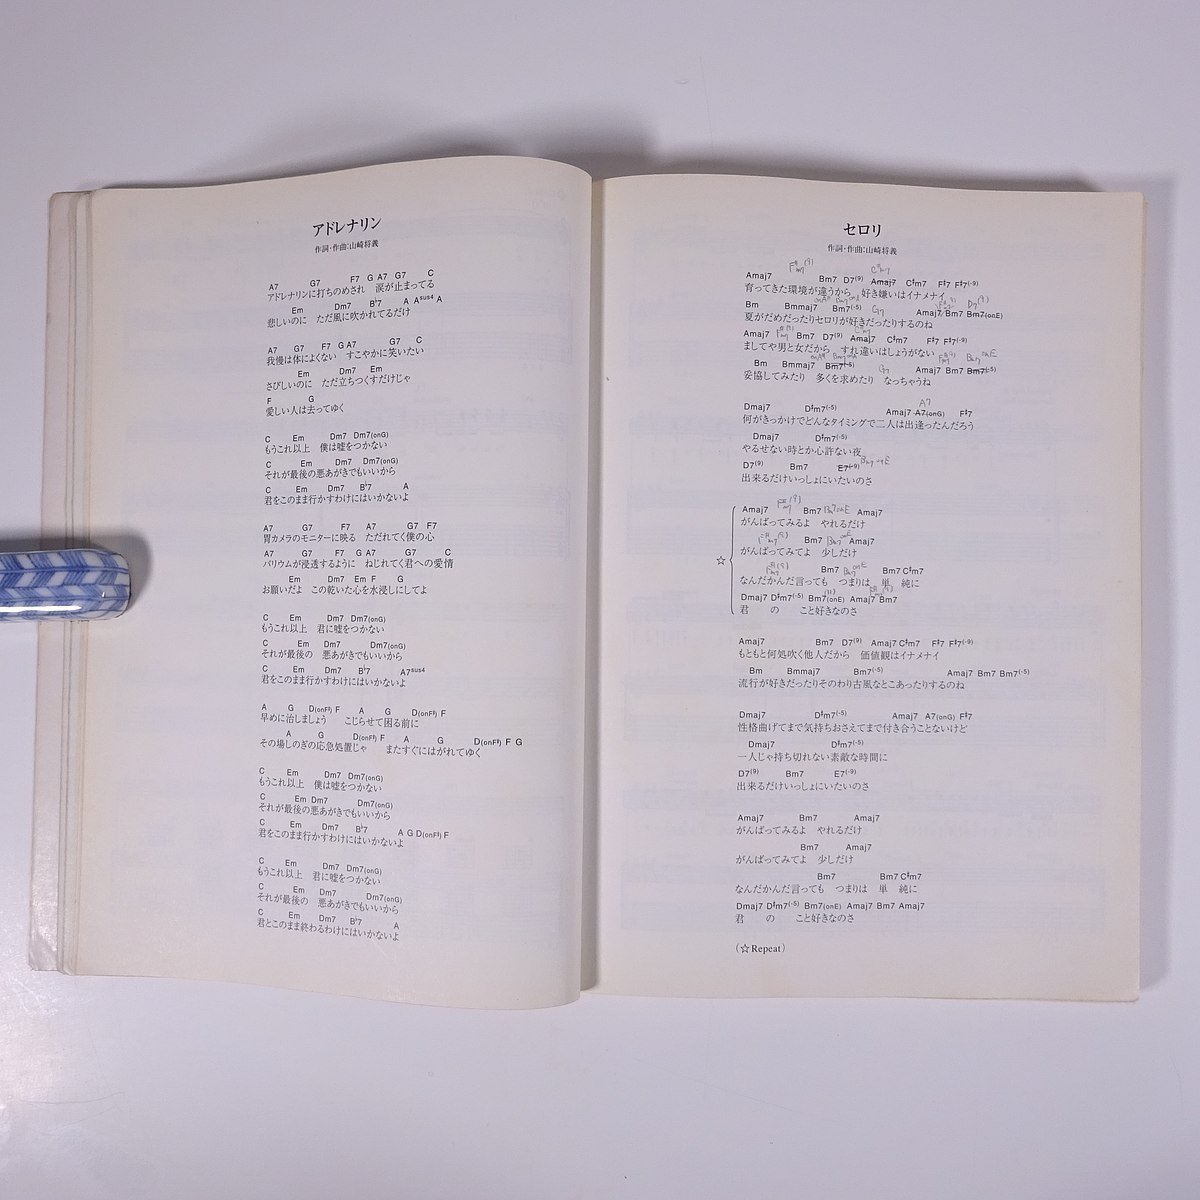 アドレナリン
作詞・作曲:山崎将義
A7 G7 F7 G A7 G7 C
アドレナリンに打ちのめされ 涙が止まってる
Em Dm7 B♭7 A Asus4 A
悲しいのに ただ風に吹かれてるだけ
A7 G7 F7 G A7 G7 C
我慢は体によくない すこやかに笑いたい
Em Dm7 Em
さびしいのに ただ立ちつくすだけじゃ
F G
愛しい人は去ってゆく
C Em Dm7 Dm7(onG)
もうこれ以上 僕は嘘をつかない
C Em Dm7 Dm7(onG)
それが最後の悪あがきでもいいから
C Em Dm7 B♭7 A
君をこのまま行かすわけにはいかないよ
A7 G7 F7 A7 G7 F7
胃カメラのモニターに映る ただれてく僕の心
A7 G7 F7 G A7 G7 C
バリウムが浸透するように ねじれてく君への愛情
Em Dm7 Em F G
お願いだよ この乾いた心を水浸しにしてよ
C Em Dm7 Dm7(onG)
もうこれ以上 君に嘘をつかない
C Em Dm7 Dm7(onG)
それが最後の 悪あがきでもいいから
C Em Dm7 B♭7 A7sus4
君をこのまま行かすわけにはいかないよ
A G D(onF♯) F A G D(onF♯) F
早めに治しましょう こじらせて困る前に
A G D(onF♯) F A G D(onF♯) F G
その場しのぎの応急処置じゃ またすぐにはがれてゆく
C Em Dm7 Dm7(onG)
もうこれ以上 僕は嘘をつかない
C Em Dm7 Dm7(onG)
それが最後の悪あがきでもいいから
C Em Dm7 B♭7 A G D(onF♯) F
君をこのまま行かすわけにはいかないよ
C Em Dm7 Dm7(onG)
もうこれ以上 君に嘘をつかない
C Em Dm7 Dm7(onG)
それが最後の 悪あがきでもいいから
C Em Dm7 B♭7 A
君とこのまま終わるわけにはいかないよ
セロリ
作詞・作曲:山崎将義
F♯m7(9) C♯m7
Amaj7 Bm7 D7(9) Amaj7 C♯m7 F♯7 F♯7(-9)
育ってきた環境が違うから 好き嫌いはイナメナイ
G7 D7(9)
Bm Bmmaj7 Bm7(-5) Amaj7 Bm7 Bm7(onE)
夏がだめだったりセロリが好きだったりするのね
Amaj7 Bm7 D7(9) Amaj7 C♯m7 F♯7 F♯7(-9)
ましてや男と女だから すれ違いはしょうがない
G7 Bm7onE
Bm Bmmaj7 Bm7(-5) Amaj7 Bm7 Bm7(-5)
妥協してみたり 多くを求めたり なっちゃうね
A7
Dmaj7 D♯m7(-5) Amaj7 A7(onG) F♯7
何がきっかけでどんなタイミングで二人は出逢ったんだろう
Dmaj7 D♯m7(-5)
やるせない時とか心許ない夜
Bm7onE
D7(9) Bm7 E7(-9)
出来るだけいっしょにいたいのさ
F♯m7(9)
Amaj7 Bm7 Bm7onE Amaj7
がんばってみるよ やれるだけ
F♯m7(9) Bm7 Bm7onE Amaj7
☆ がんばってみてよ 少しだけ
F♯m7(9) Bm7 Bm7onE Bm7 C♯m7
なんだかんだ言っても つまりは 単 純に
Dmaj7 D♯m7(-5) Bm7(onE) Amaj7 Bm7
君 の こと好きなのさ
Amaj7 Bm7 D7(9) Amaj7 C♯m7 F♯7 F♯7(-9)
もともと何処吹く他人だから 価値観はイナメナイ
Bm Bmmaj7 Bm7(-5) Amaj7 Bm7 Bm7(-5)
流行が好きだったりそのわり古風なとこあったりするのね
Dmaj7 D♯m7(-5) Amaj7 A7(onG) F♯7
性格曲げてまで気持ちおさえてまで付き合うことないけど
Dmaj7 D♯m7(-5)
一人じゃ持ち切れない素敵な時間に
D7(9) Bm7 E7(-9)
出来るだけいっしょにいたいのさ
Amaj7 Bm7 Amaj7
がんばってみるよ やれるだけ
Bm7 Amaj7
がんばってみてよ 少しだけ
Bm7 Bm7 C♯m7
なんだかんだ言っても つまりは 単 純に
Dmaj7 D♯m7(-5) Bm7(onE) Amaj7 Bm7 Amaj7
君 の こと好きなのさ
(☆Repeat)